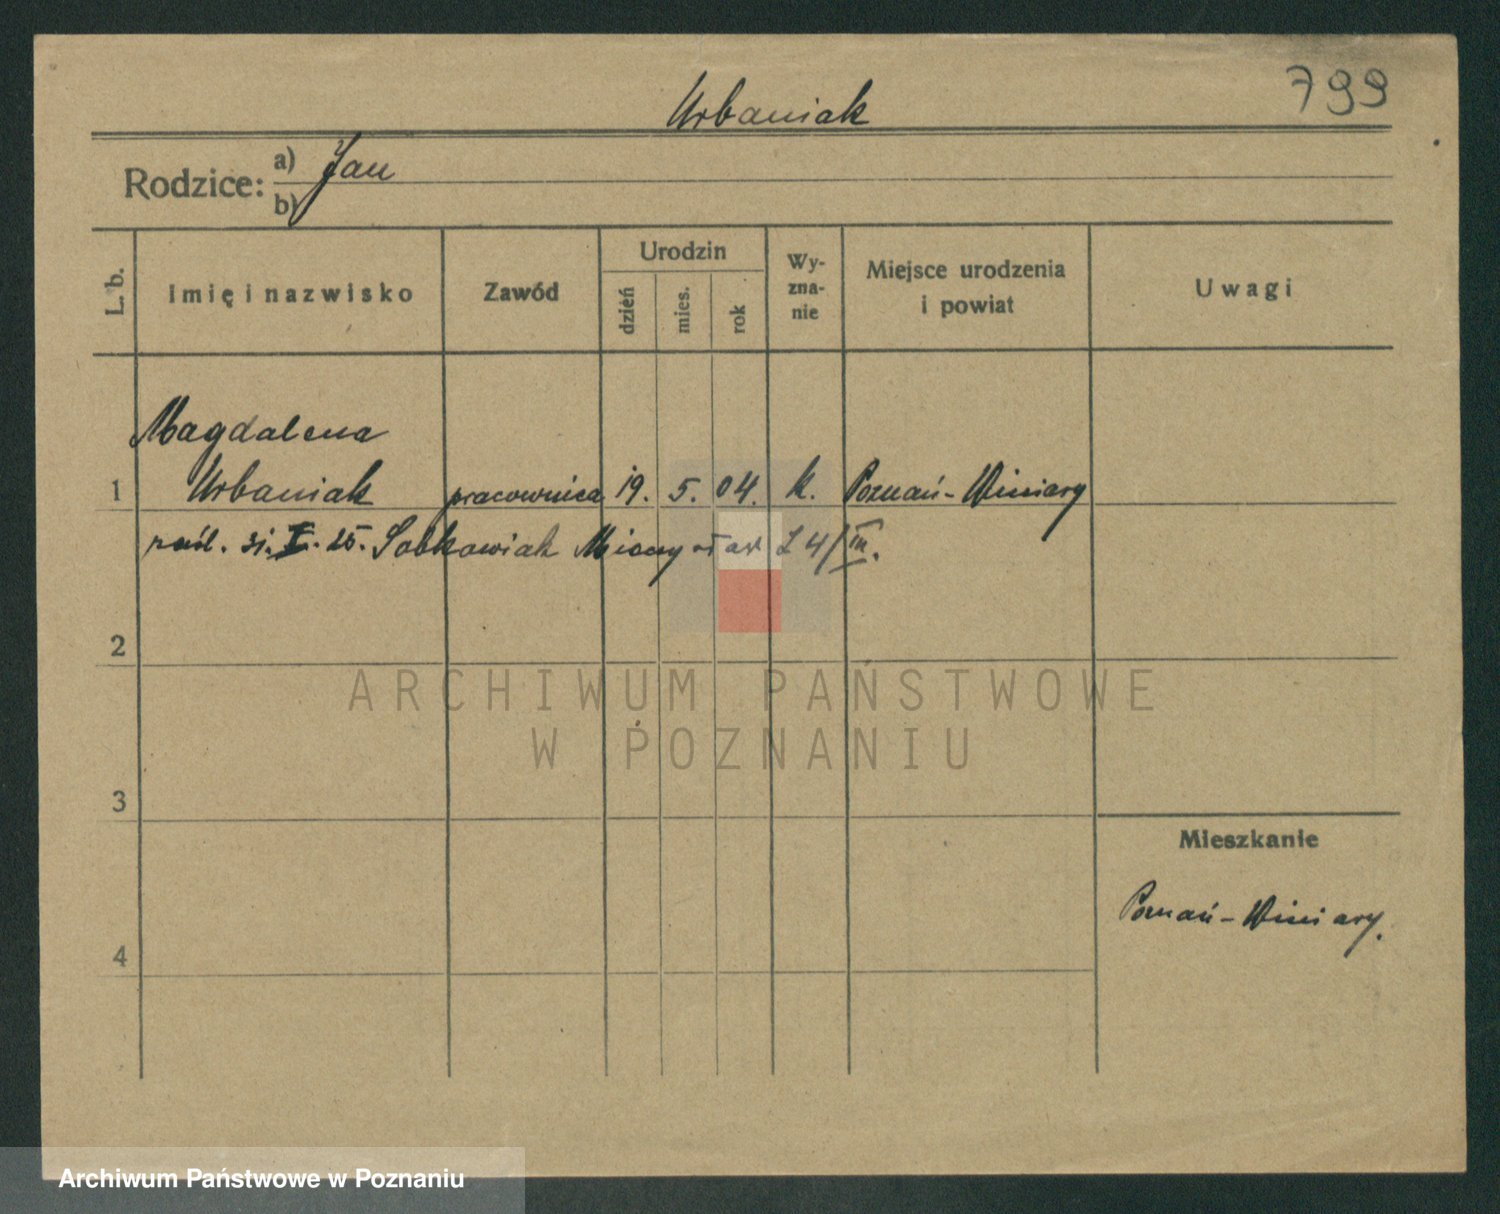 799
Urbaniak
Rodzice: a) Jan
b)
L. b.
Imię i nazwisko
Zawód
Urodzin
dzień
mies.
rok
Wy-
zna-
nie
Miejsce urodzenia
i powiat
Uwagi
Magdalena
1 Urbaniak pracownica 19. 5. 04. k. Poznań-Winiary
31. 25. Sobkowiak
2
3
4
Mieszkanie
Poznań-Winiary.
ARCHIWUM PAŃSTWOWE
W POZNANIU
Archiwum Państwowe w Poznaniu